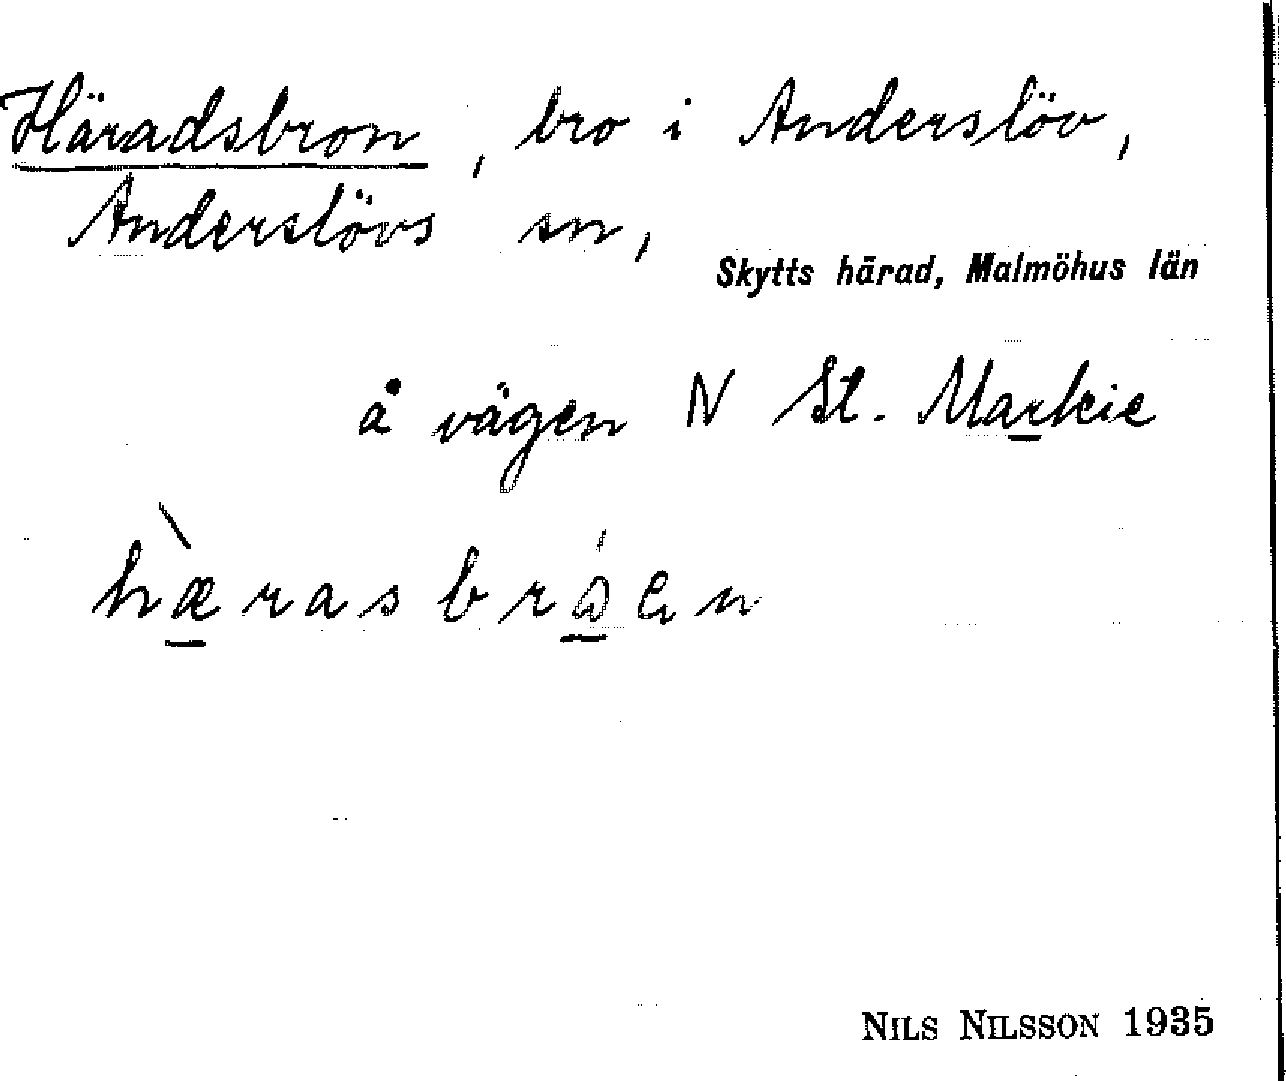 Häradsbron, bro i Anderslöv,
Anderslövs sn,
Skytts härad, Malmöhus län
å vägen N St. Markie
NILS NILSSON 1935